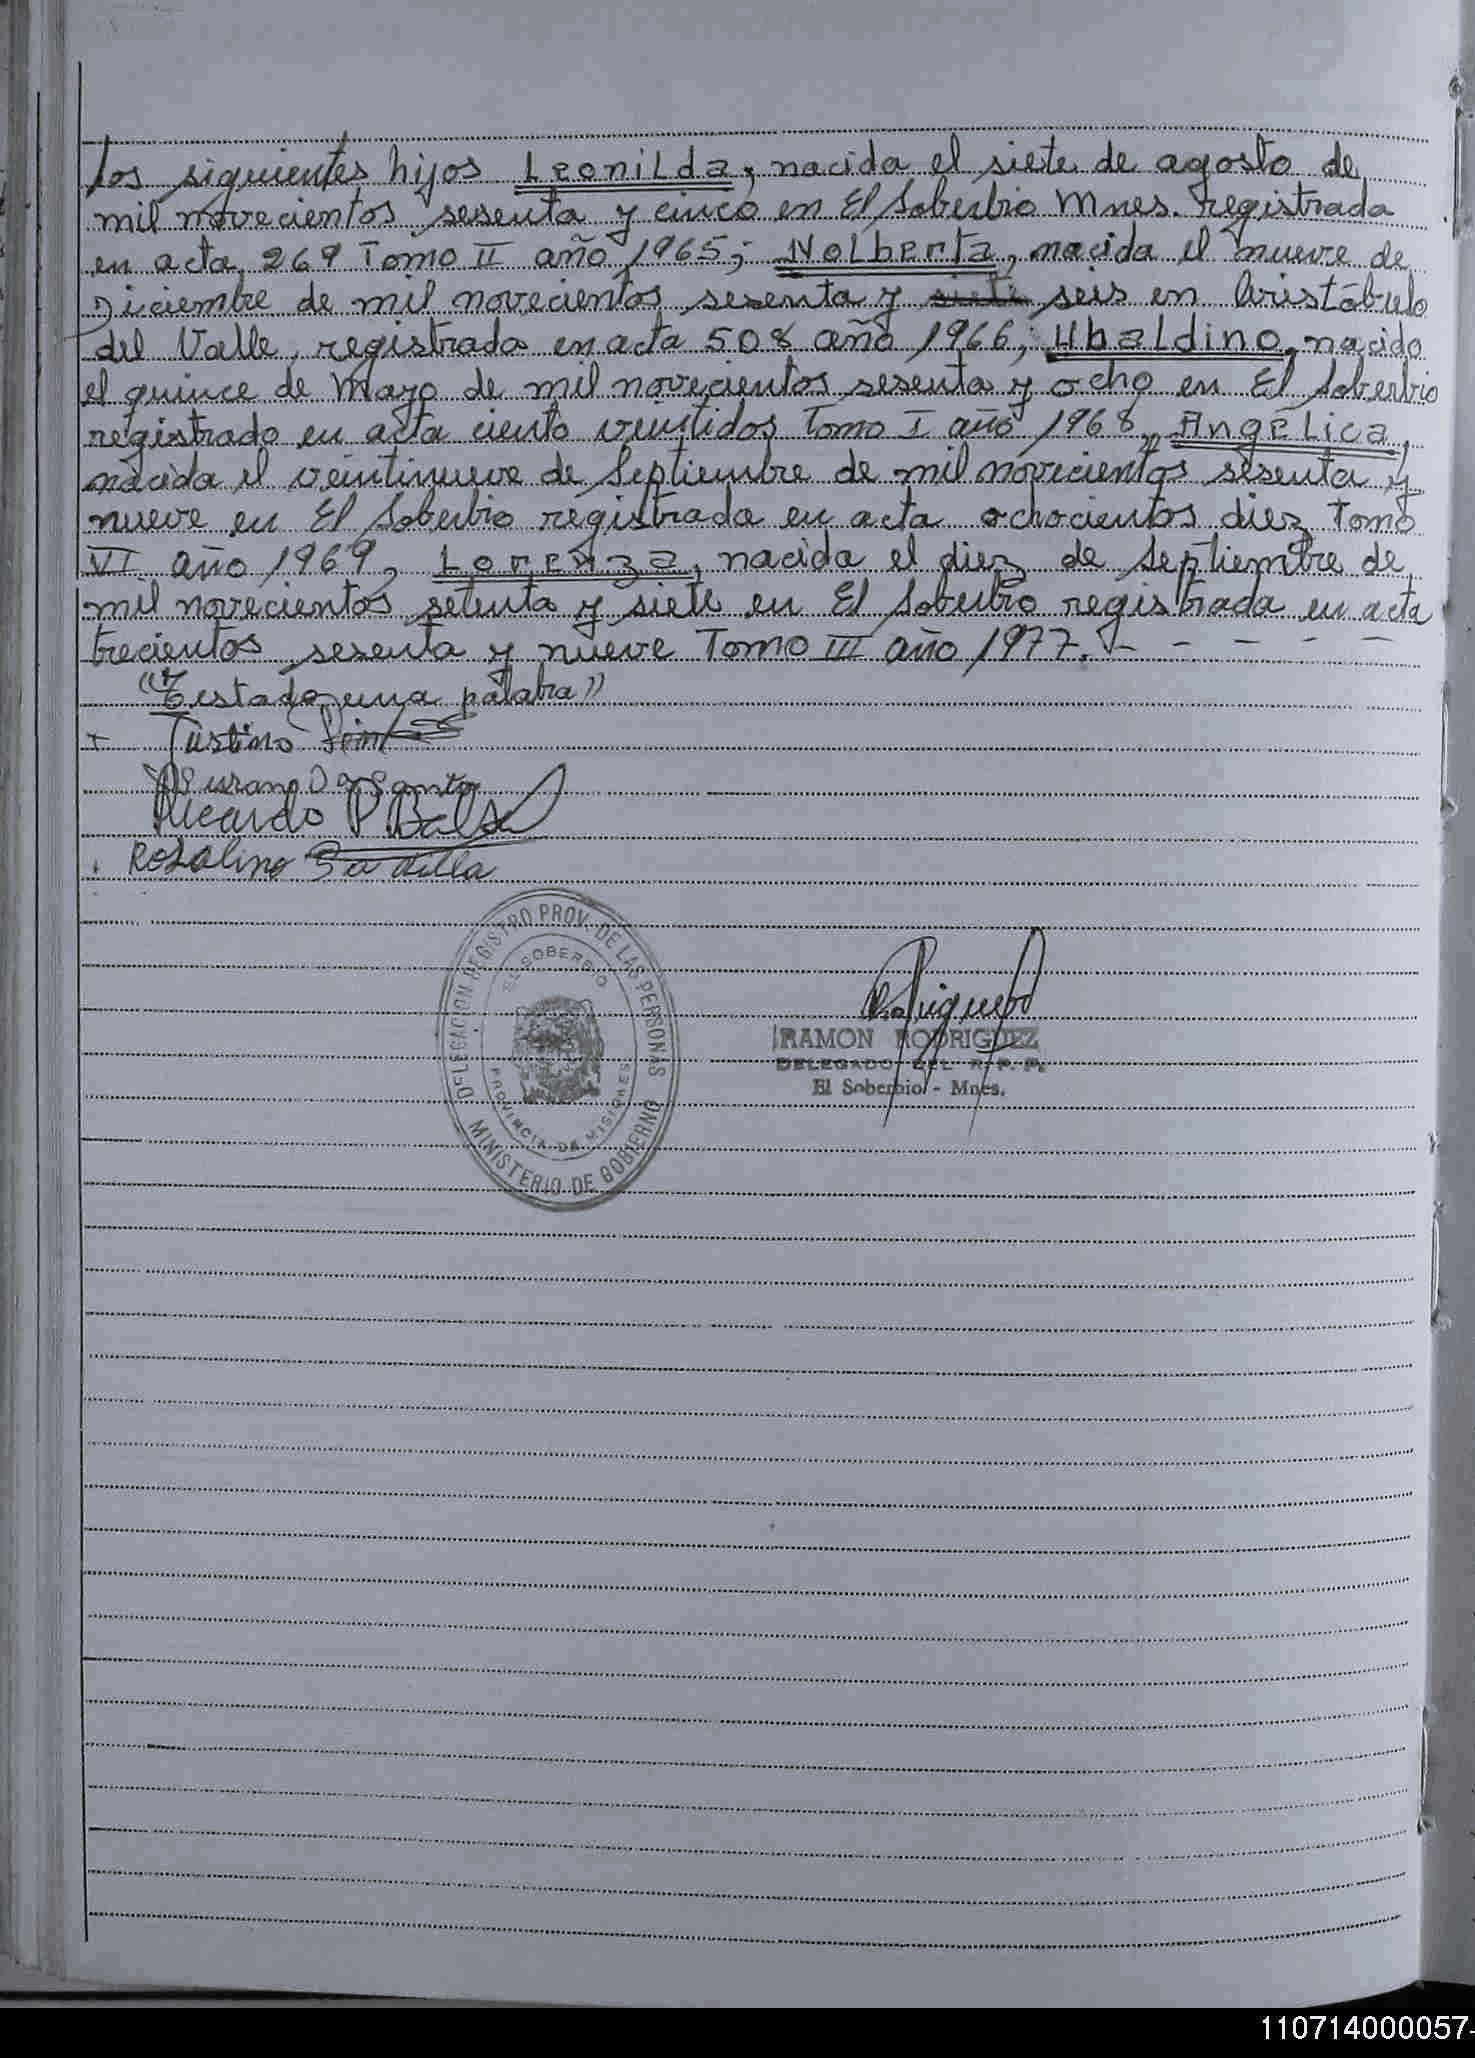 los siguientes hijos Leonilda, nacida el siete de agosto de
mil novecientos sesenta y cinco en El Soberbio Mnes. registrada
en acta 269 Tomo II año 1965; Nolberta, nacida el nueve de
Diciembre de mil novecientos sesenta y siete seis en Aristóbulo
del Valle, registrada en acta 508 año 1966; Ubaldino, nacido
el quince de Mayo de mil novecientos sesenta y ocho en El Soberbio
registrado en acta ciento veintidos Tomo I año 1968, Angélica,
nacida el veintinueve de Septiembre de mil novecientos sesenta y
nueve en El Soberbio registrada en acta ochocientos diez Tomo
VI año 1969, Lorenza, nacida el diez de Septiembre de
mil novecientos setenta y siete en El Soberbio registrada en acta
trecientos sesenta y nueve Tomo III año 1977. - - - - -
"Testado una palabra"
Justino
Ricardo P
Rosalino
DELEGACION REGISTRO PROV. DE LAS PERSONAS
EL SOBERBIO
PROVINCIA DE MISIONES
MINISTERIO DE GOBIERNO
RAMON RODRIGUEZ
DELEGADO DEL R.P.P.
El Soberbio - Mnes.
110714000057-